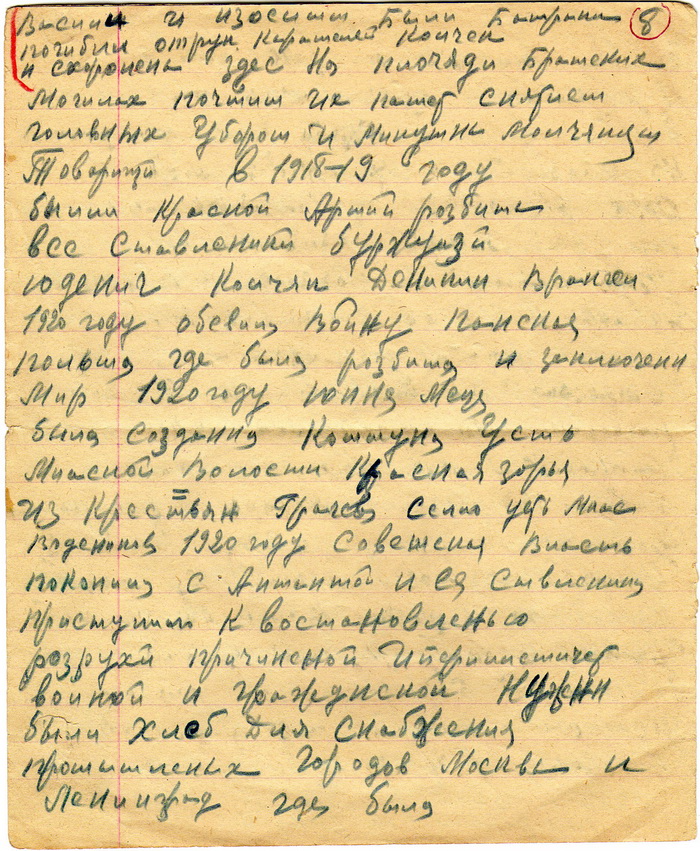 Васили и изосим были батраки 8
погибли отрук карателей Колчек
и схоронена здес На площяди братских
Могилах почтим их памет снятием
головных Уборов и Минутны Молчянием
Товарищи в 1918-19 году
были Красной Армий розбита
все Ставленики буржуазй
юденич Колчяк Деникин Врангел
1920 году обевила Войну панская
польша где была розбита и заключени
Мир 1920 году июня Меця
была созданна Коммуна Усть
Миасской Волости Красная зорья
из Крестьян Грачева Село усть Миас
1920 году Советская Власть
покончила с Антантой и ея ставленика
приступила к востановленью
розрухи причиненой
войной и гражденской Нужен
были хлеб Для Снабжения
промышленых Городов Москвы и
Ленинград где была